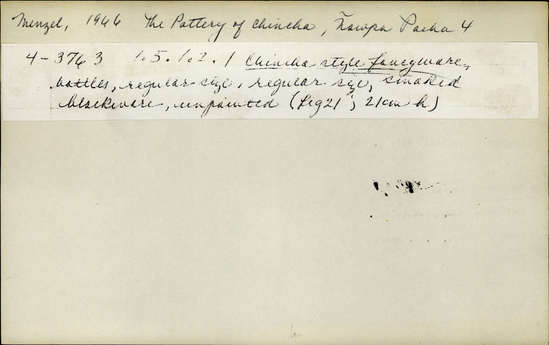 Menzel, 1966 The Pottery of Chincha, Ñawpa Pacha 4
4-3763 1.5.1.2.1 Chincha style fancyware,
bottles, regular style, regular size, smoked
blackware, unpainted (fig 21; 21cm h)